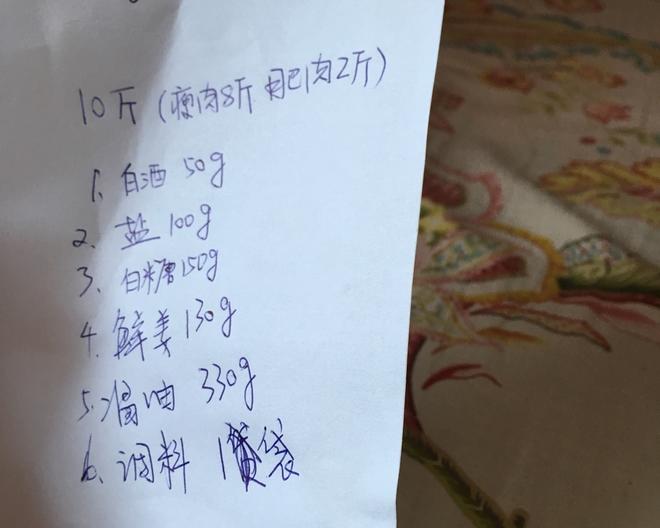 10斤(瘦肉8斤 肥肉2斤)
1. 白酒 50g
2. 盐 100g
3. 白糖 150g
4. 鲜姜 130g
5. 酱油 330g
6. 调料 1袋